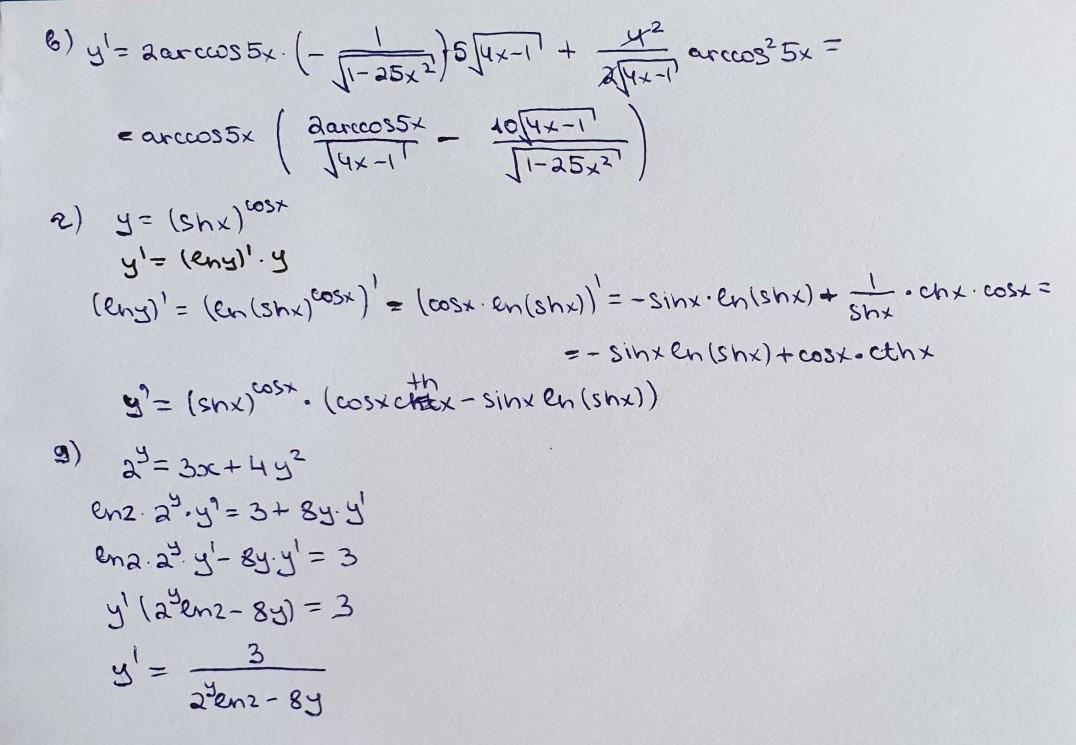 в) y' = 2arccos5x · (- 1/√(1-25x²)) · 5√(4x-1) + 4²/(2√(4x-1)) arccos²5x =
= arccos5x ( 2arccos5x/√(4x-1) - 10√(4x-1)/√(1-25x²) )
г) y = (shx)^cosx
y' = (lny)' · y
(lny)' = (ln(shx)^cosx)' = (cosx · ln(shx))' = -sinx · ln(shx) + 1/shx · chx · cosx =
= - sinx ln(shx) + cosx · cthx
y' = (shx)^cosx · (cosx cthx - sinx ln(shx))
д) 2^y = 3x + 4y²
ln2 · 2^y · y' = 3 + 8y · y'
ln2 · 2^y · y' - 8y · y' = 3
y' (2^y ln2 - 8y) = 3
y' = 3/(2^y ln2 - 8y)